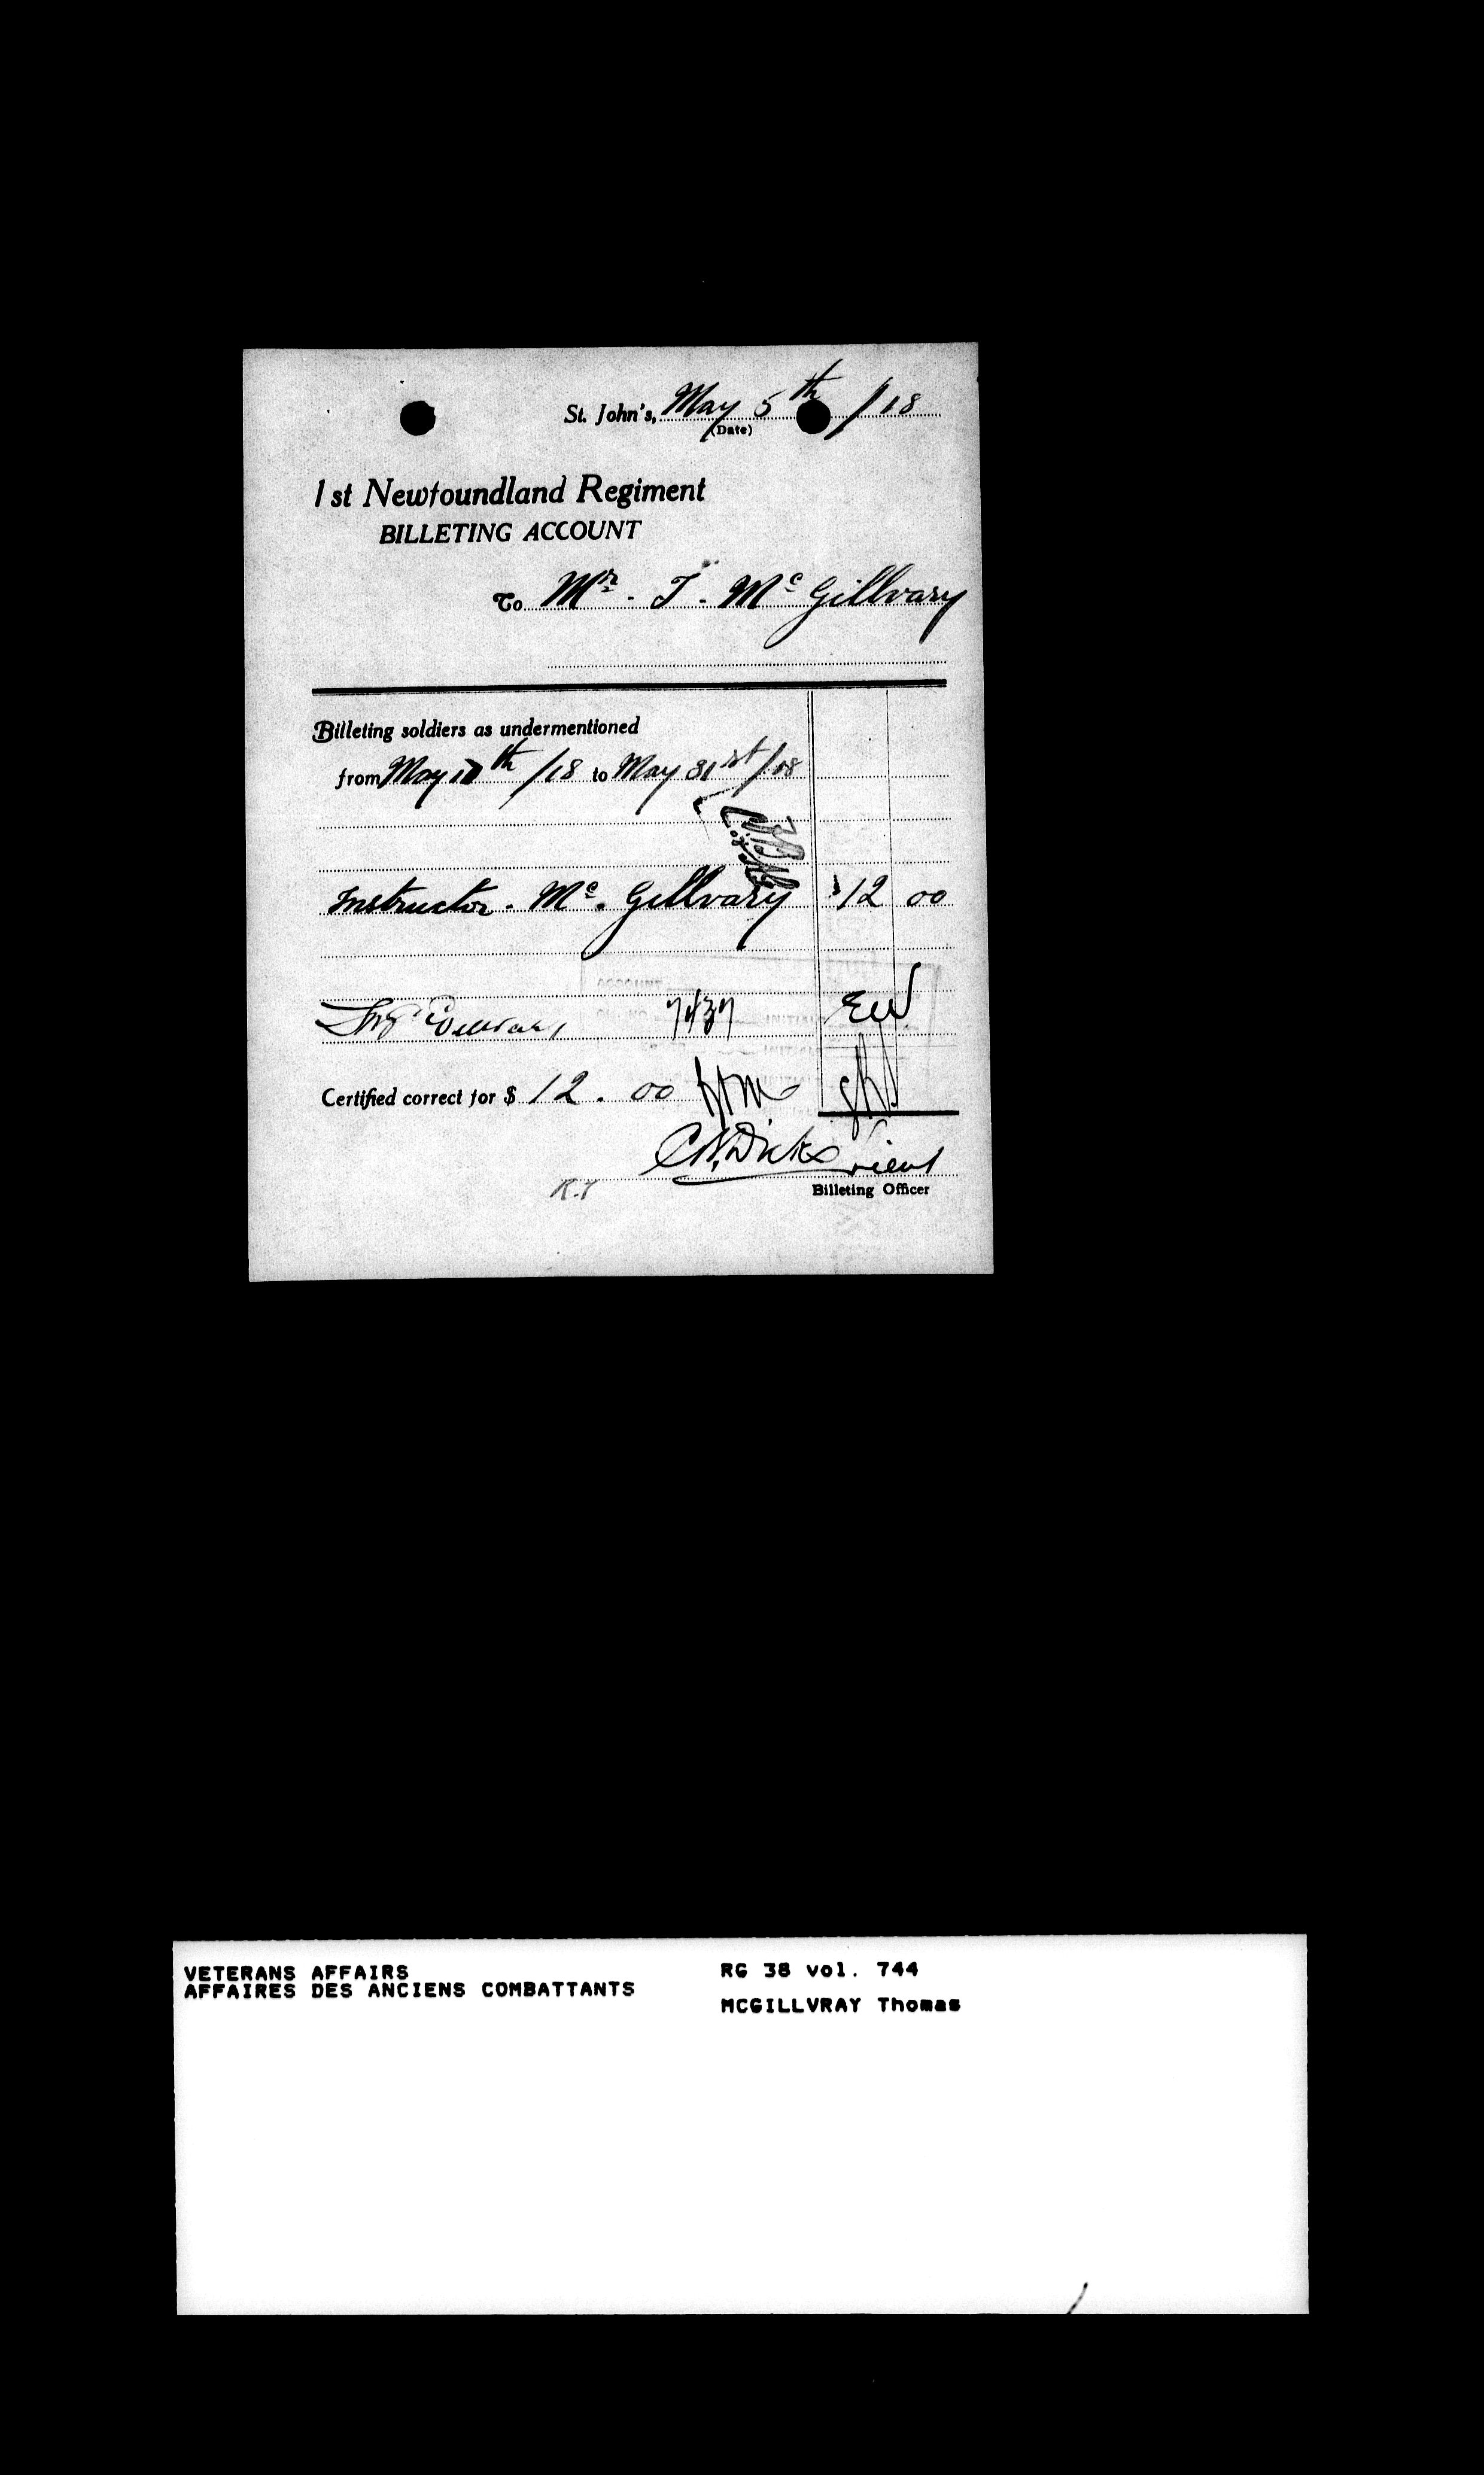 St. John's, May 5th /18
(Date)
1st Newfoundland Regiment
BILLETING ACCOUNT
To Mr. T. Mc Gillvary
Billeting soldiers as undermentioned
from May 17th /18 to May 31st /18
Instructor. Mc. Gillvary $12 00
7437 EW
Certified correct for $ 12. 00
Billeting Officer
R.T
VETERANS AFFAIRS
AFFAIRES DES ANCIENS COMBATTANTS
RG 38 vol. 744
MCGILLVRAY Thomas